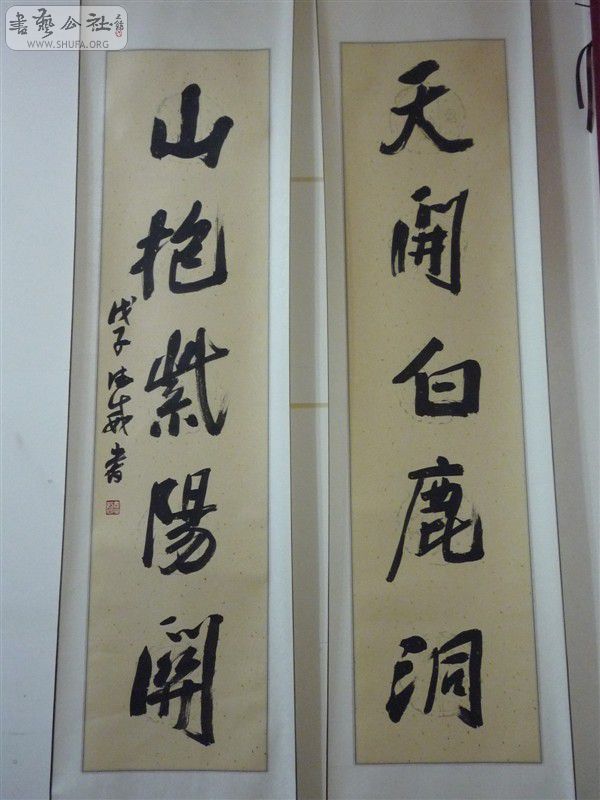 天開白鹿洞
山抱紫陽關
戊子 書
書藝公社
WWW.SHUFA.ORG